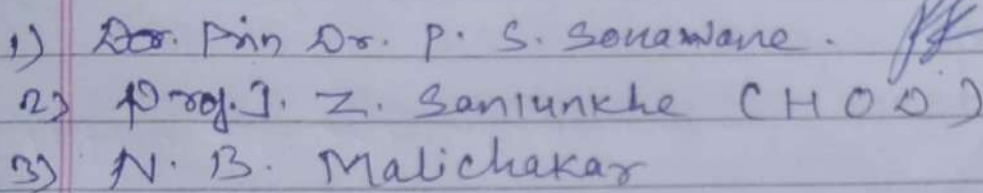 1) Dr. Prin Dr. P. S. Sonawane.
2) Prof. J. Z. Sanlunkhe (HOD)
3) N. B. Malichakar